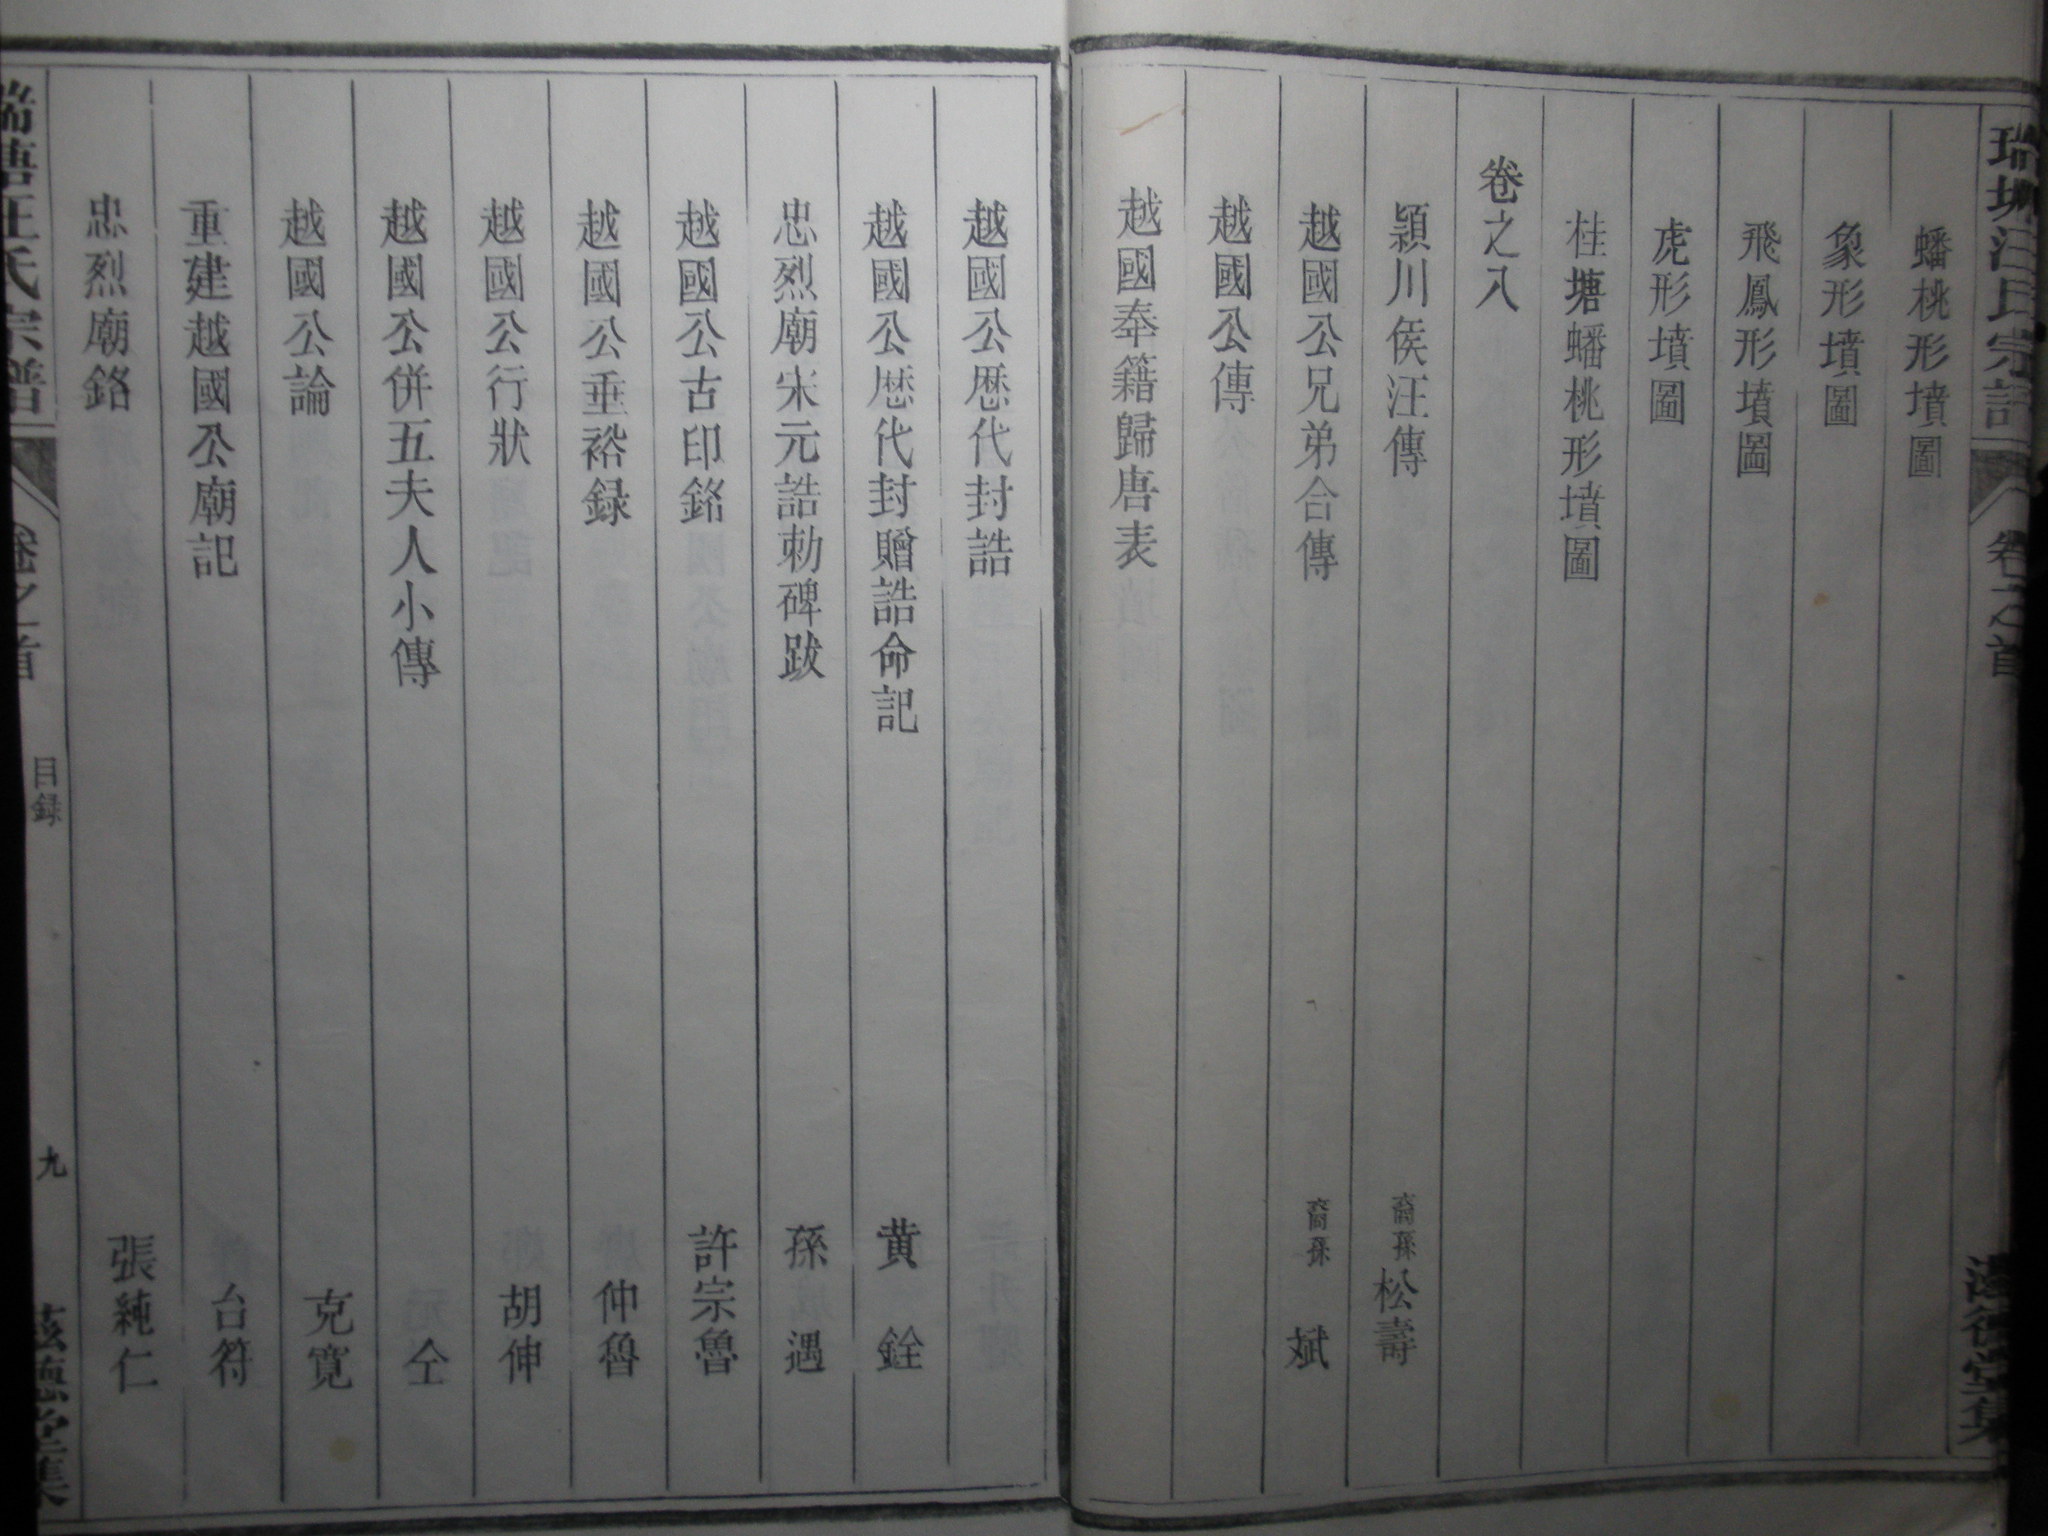 瑞塘汪氏宗譜
卷之首
蟠桃形墳圖
象形墳圖
飛鳳形墳圖
虎形墳圖
桂塘蟠桃形墳圖
卷之八
潁川侯汪傳 裔孫 松壽
越國公兄弟合傳 裔孫 斌
越國公傳
越國奉籍歸唐表
越國公歷代封誥
越國公歷代封贈誥命記 黃銓
忠烈廟宋元誥勅碑跋 孫遇
越國公古印銘 許宗魯
越國公垂裕録 仲魯
越國公行狀 胡伸
越國公併五夫人小傳 仝
越國公論 克寬
重建越國公廟記 台符
忠烈廟銘 張純仁
瑞塘汪氏宗譜
卷之首
目録
九